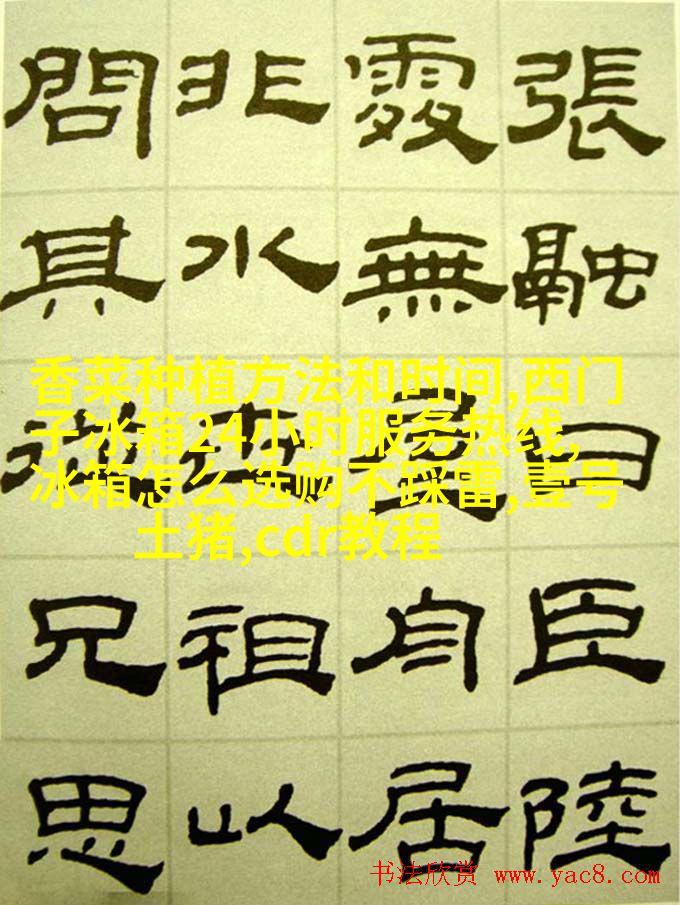 張融曰臣陸
處無屋舟居
非水世祖以
問其從兄思
香菜种植方法和时间,西门
子冰箱24小时服务热线,
冰箱怎么选购不踩雷,壹号
土猪,cdr教程
书法欣赏 www.yac8.com